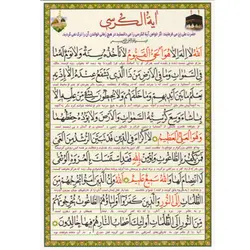 آیة الکرسی
حضرت علی (ع) می فرمایند: اگر خواص آیة الکرسی را می دانستید در هیچ زمانی خواندن آن را ترک نمی کردید
اللَّهُ لَا إِلَهَ إِلَّا هُوَ الْحَيُّ الْقَيُّومُ لَا تَأْخُذُهُ سِنَةٌ وَلَا نَوْمٌ لَهُ مَا
فِي السَّمَاوَاتِ وَمَا فِي الْأَرْضِ مَنْ ذَا الَّذِي يَشْفَعُ عِنْدَهُ إِلَّا بِإِذْنِهِ
يَعْلَمُ مَا بَيْنَ أَيْدِيهِمْ وَمَا خَلْفَهُمْ وَلَا يُحِيطُونَ بِشَيْءٍ مِنْ عِلْمِهِ
إِلَّا بِمَا شَاءَ وَسِعَ كُرْسِيُّهُ السَّمَاوَاتِ وَالْأَرْضَ وَلَا يَئُودُهُ حِفْظُهُمَا
وَهُوَ الْعَلِيُّ الْعَظِيمُ لَا إِكْرَاهَ فِي الدِّينِ قَدْ تَبَيَّنَ الرُّشْدُ مِنَ الْغَيِّ
فَمَنْ يَكْفُرْ بِالطَّاغُوتِ وَيُؤْمِنْ بِاللَّهِ فَقَدِ اسْتَمْسَكَ بِالْعُرْوَةِ الْوُثْقَى
لَا انْفِصَامَ لَهَا وَاللَّهُ سَمِيعٌ عَلِيمٌ اللَّهُ وَلِيُّ الَّذِينَ آمَنُوا يُخْرِجُهُمْ مِنَ
الظُّلُمَاتِ إِلَى النُّورِ وَالَّذِينَ كَفَرُوا أَوْلِيَاؤُهُمُ الطَّاغُوتُ يُخْرِجُونَهُمْ
مِنَ النُّورِ إِلَى الظُّلُمَاتِ أُولَئِكَ أَصْحَابُ النَّارِ هُمْ فِيهَا خَالِدُونَ